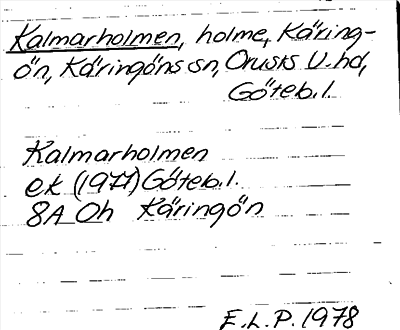 Kalmarholmen, holme, Käring-
ön, Käringöns sn, Orusts V. hd,
Göteb. l.
Kalmarholmen
ek (1977) Göteb. l.
8A Oh Käringön
E. L. P. 1978